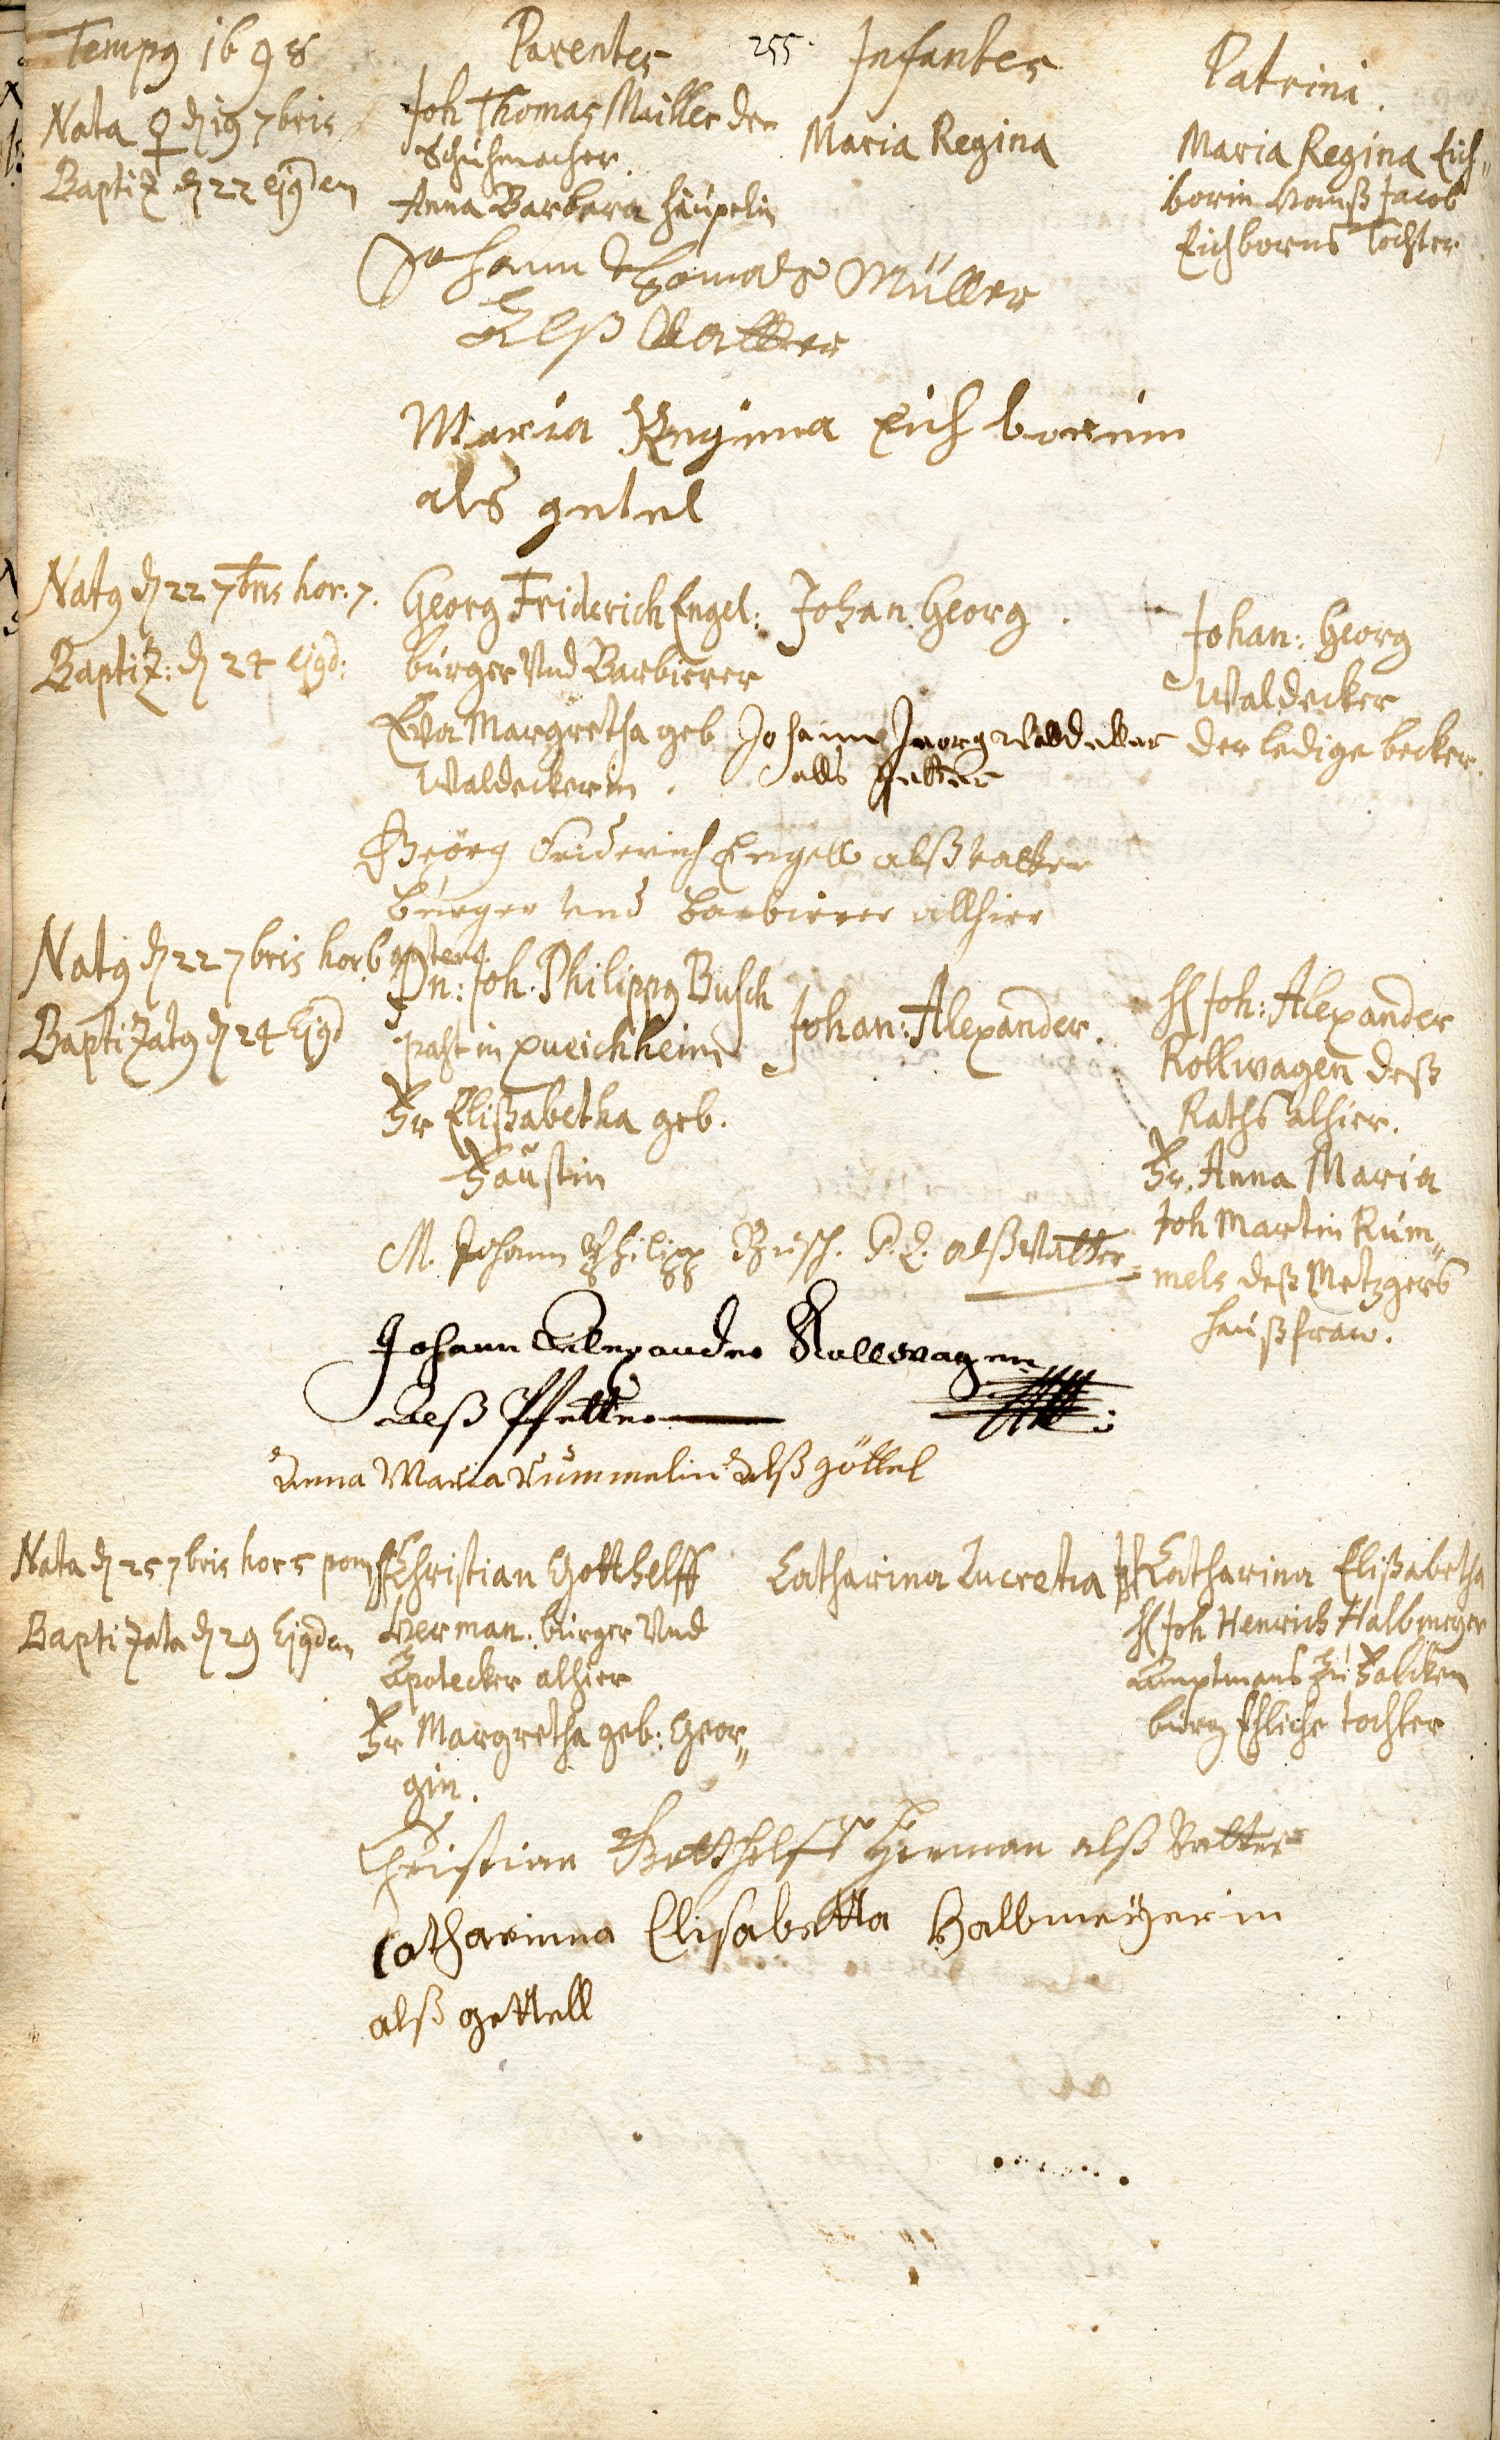 Tempg 1698
Parentes
255.
Infantes
Patrini.
Nata ♀ d 19 7bris
Baptiz d 22 ejgdem
Joh Thomas Müller der
Schuhmacher.
Anna Barbara häupelin
Maria Regina
Maria Regina Eich„
bornin Hanß Jacob
Eichborns Tochter
Johann Thomas Müller
Alß Vatter
Maria Regina Eich bornin
als getel
Natg d 22 7bris hor. 7.
Baptiz: d 24 ejgd:
Georg Friderich Engel:
burger Vnd Barbierer
Eva Margretha geb
Waldeckerin.
Johan Georg.
Johan: Georg
Waldecker
der ledige becker.
Johann Jeorg Walldecker
alls petter
Geörg Friderich Engell alß vatter
burger vnd barbierer allhier
Natg d 22 7bris hor 6
Baptizatg d 24 Ejgd
Dn: Joh. Philippg Busch
past in queichheim
Fr Elißabetha geb.
Faustin
Johan: Alexander.
H Joh: Alexander
Rollwagen deß
Raths alhier.
Fr. Anna Maria
Joh Martin Rum„
mels deß Metzgers
haußfraw.
M. Johann Philipp Busch. P. L. alß Vatter
Johann Allexander Rollwagen
Alß Pfetter
Anna Maria rummelin Alß göttel
Nata d 25 7bris hor 5 pom
Baptizata d 29 Ejgdem
H Christian Gotthelff
Herman. burger Vnd
Apotecker alhier
Fr Margretha geb: Geor„
gin.
Catharina Lucretia
Jf Catharina Elißabetha
H Joh Henrich Halbmeyer
Amptmans zu Falcken
burg Ehliche tochter
Christian Gotthelff Herman alß Vatter
Catharinna Elisabetta Halbmeÿerin
alß gettell